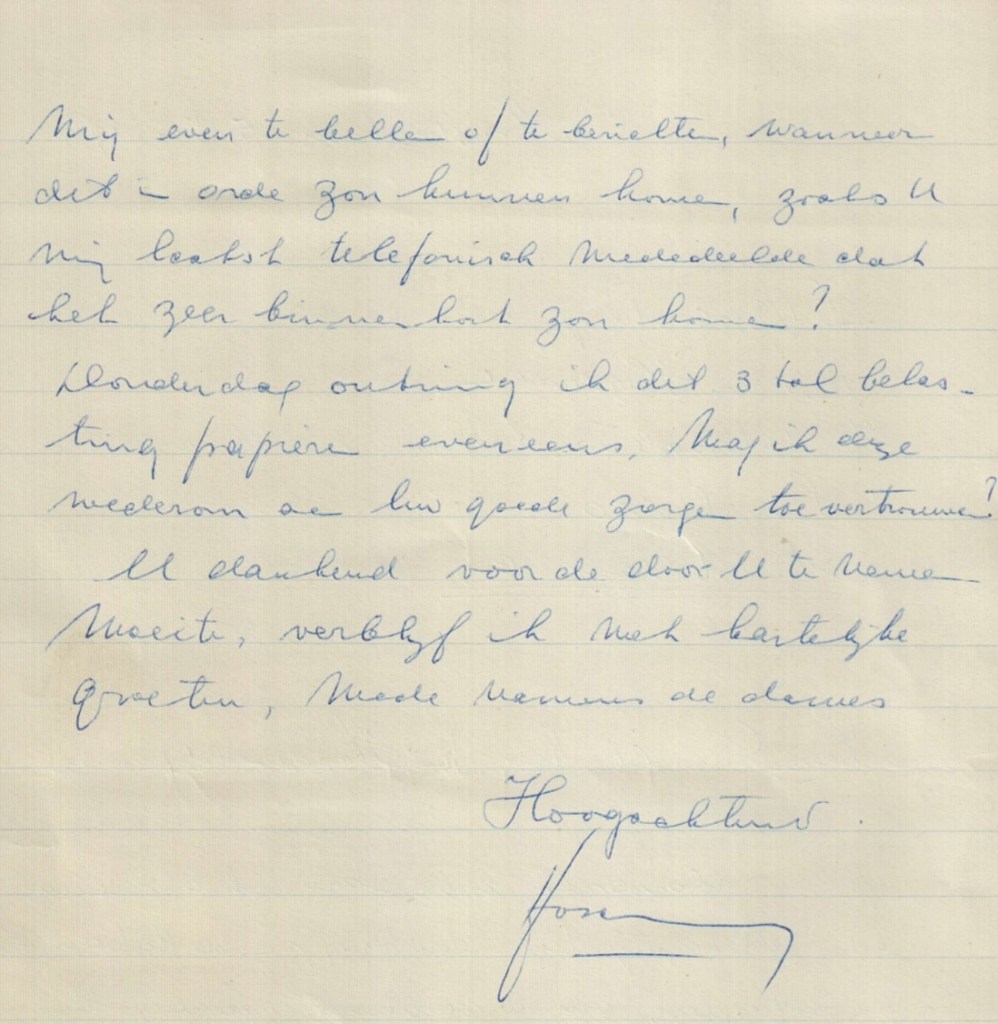 Mij even te bellen of te berichten, wanneer
dit in orde zou kunnen komen, zoals U
mij laatst telefonisch mededeelde dat
het zeer binnenkort zou komen?
Donderdag ontving ik dit 3 tal belas-
ting papieren eveneens. Mag ik deze
wederom aan Uw goede zorgen toevertrouwen?
U dankend voor de door U te nemen
moeite, verblijf ik met hartelijke
groeten, mede namens de dames
Hoogachtend